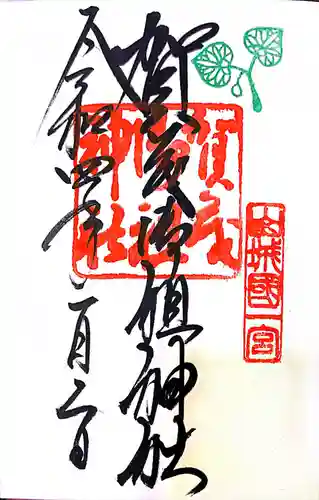 山城國一宮
賀茂御祖神社
賀茂御祖神社
令和四年一月二日